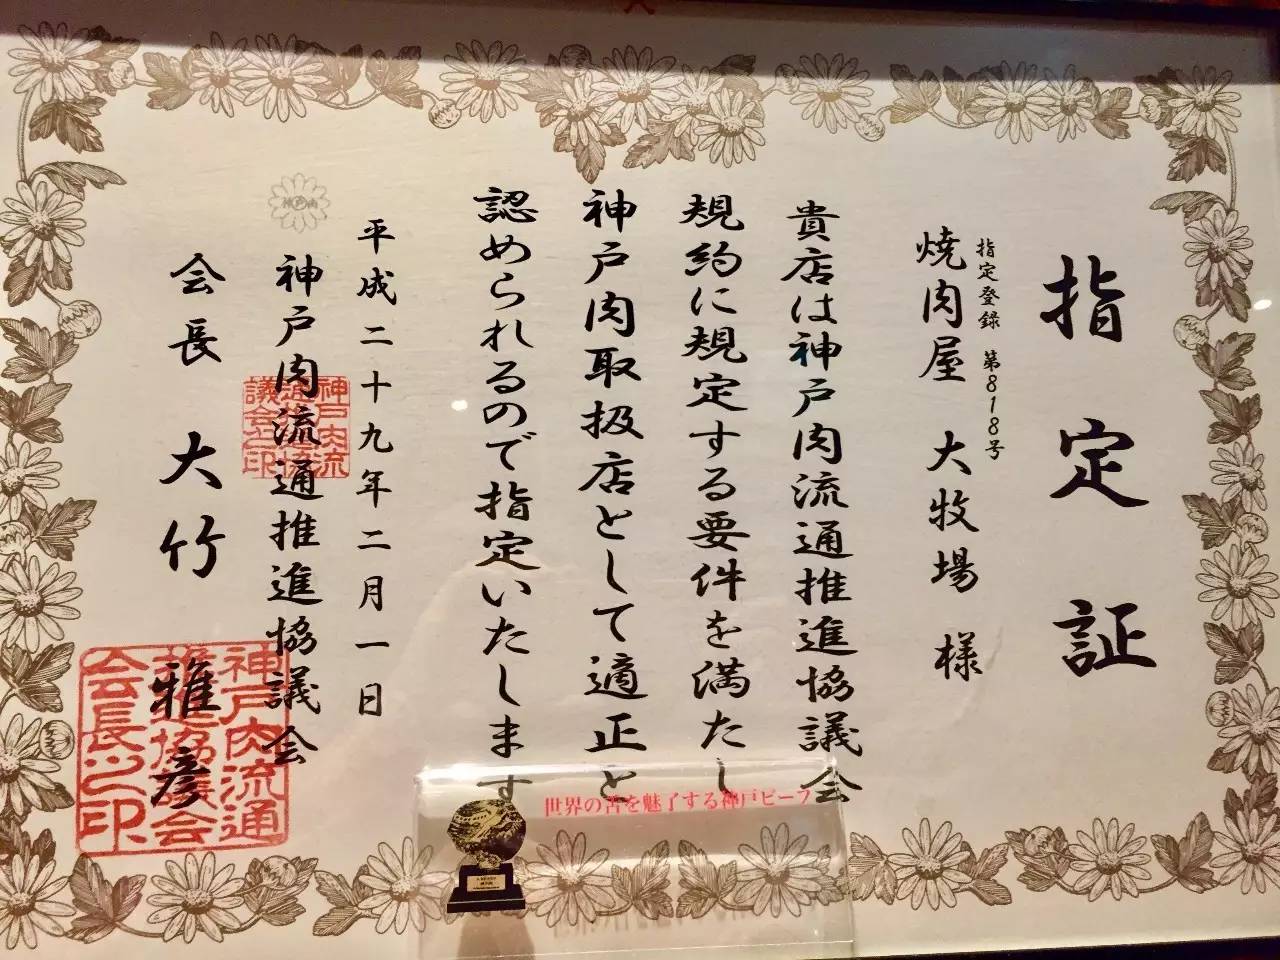 指定証
指定登録 第818号
焼肉屋 大牧場 様
貴店は神戸肉流通推進協議会
規約に規定する要件を満たし
神戸肉取扱店として適正と
認められるので指定いたします
平成二十九年二月一日
神戸肉流通推進協議会
会長 大竹 雅彦
神戸肉流
通推進協
議会之印
神戸肉流通
推進協議会
会長之印
世界の舌を魅了する神戸ビーフ